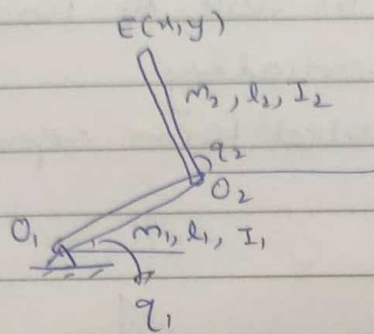 E(x,y)
m₂, l₂, I₂
q₂
O₂
O₁
m₁, l₁, I₁
q₁